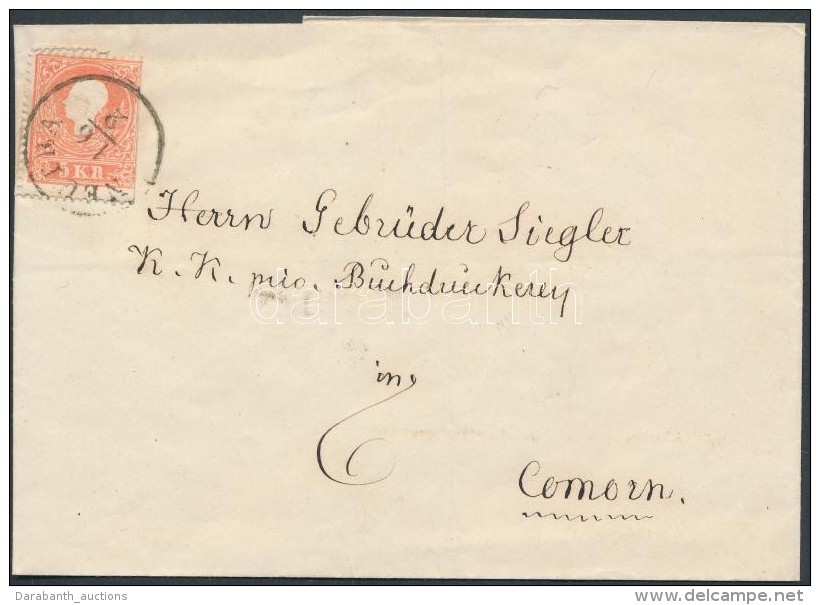 5 KR
NEUTRA
Herrn Gebrüder Siegler
K. K. priv. Buchdruckerey
darabanth
in
Comorn.
Darabanth_auctions
delcampe.net